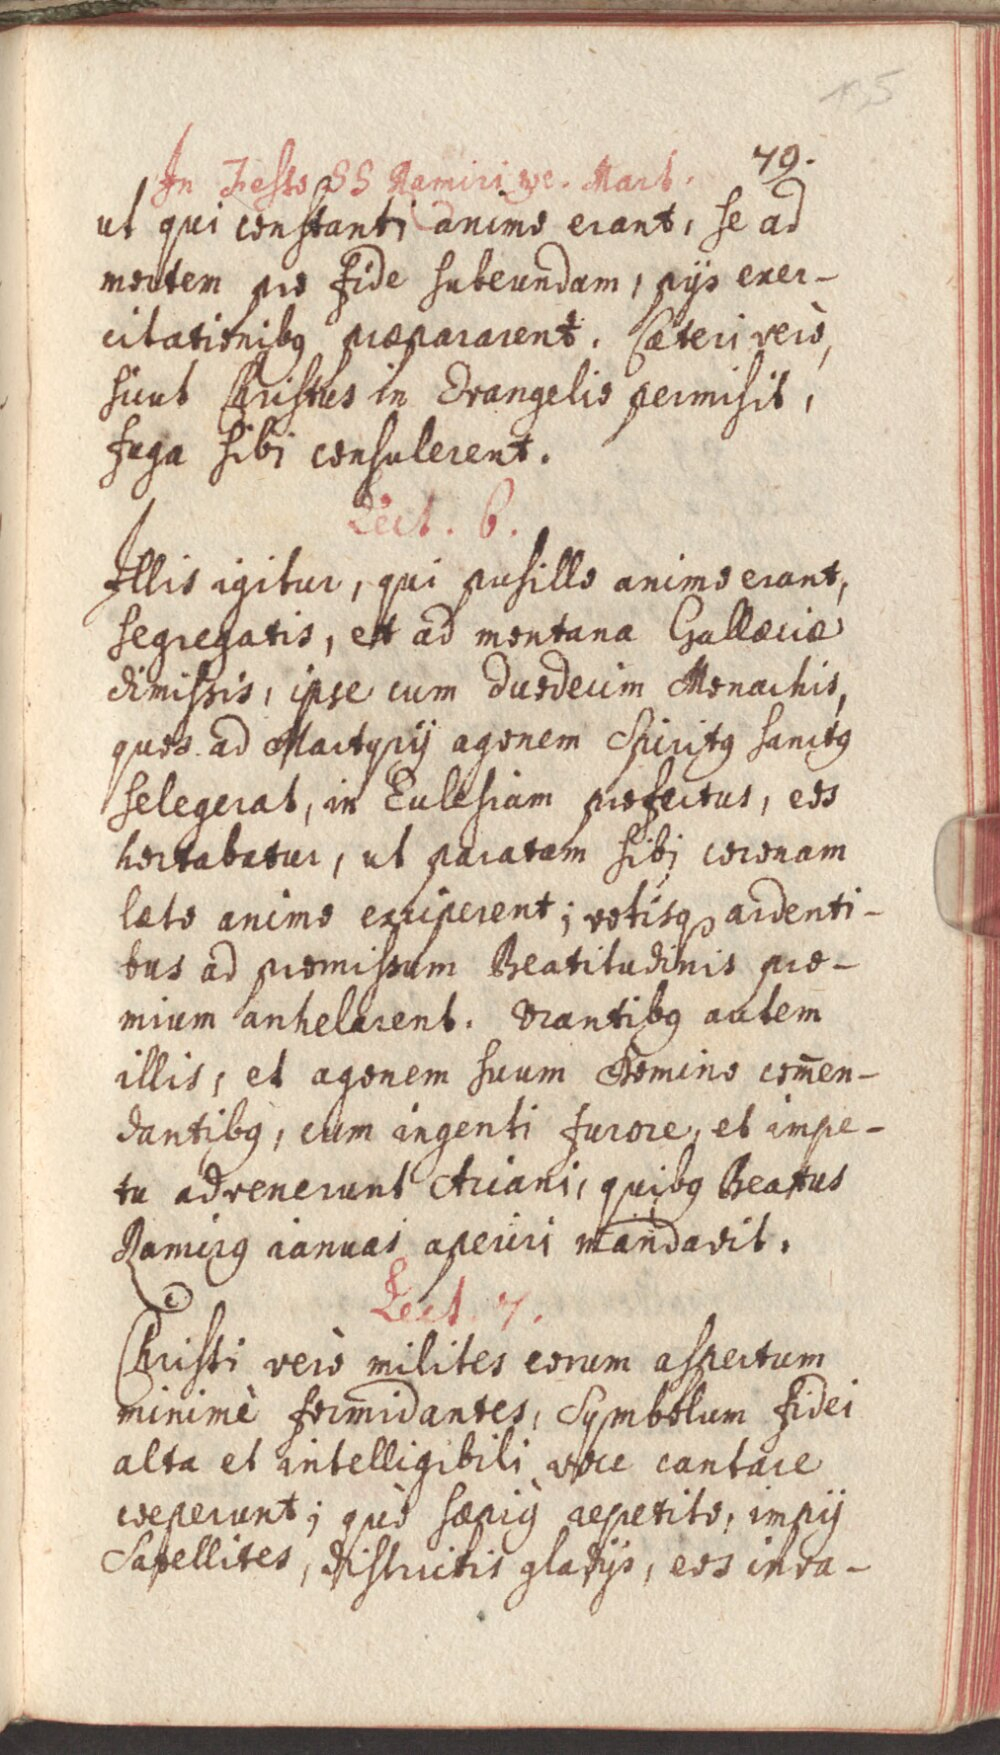 79.
In Festo SS Ramiri &c. Mart.
ut qui constanti animo erant, se ad
mortem pro fide subeundam, pijs exer-
citationibꝫ præpararent. Cæteri verò,
sicut Christus in Evangelio permisit,
fuga sibi consulerent.
Lect. 6.
Illis igitur, qui pusillo animo erant,
segregatis, et ad montana Gallæciæ
dimissis, ipse cum duodecim Monachis,
quos ad Martyrij agonem Spiritꝫ sanctꝫ
selegerat, in Eclesiam profectus, eos
hortabatur, ut paratam sibi coronam
læto animo exciperent; votisqꝫ ardenti-
bus ad promissum Beatitudinis præ-
mium anhelarent. Orantibꝫ autem
illis, et agonem suum Domino com̄en-
dantibꝫ, cum ingenti furore, et impe-
tu advenerunt Ariani, quibꝫ Beatus
Ramirꝫ ianuas aperiri mandavit.
Lect. 7.
Christi verò milites eorum aspectum
minimè formidantes, Symbolum fidei
alta et intelligibili voce cantare
coeperunt; quò sæpiꝫ repetito, impij
Satellites, districtis gladijs, eos inva-